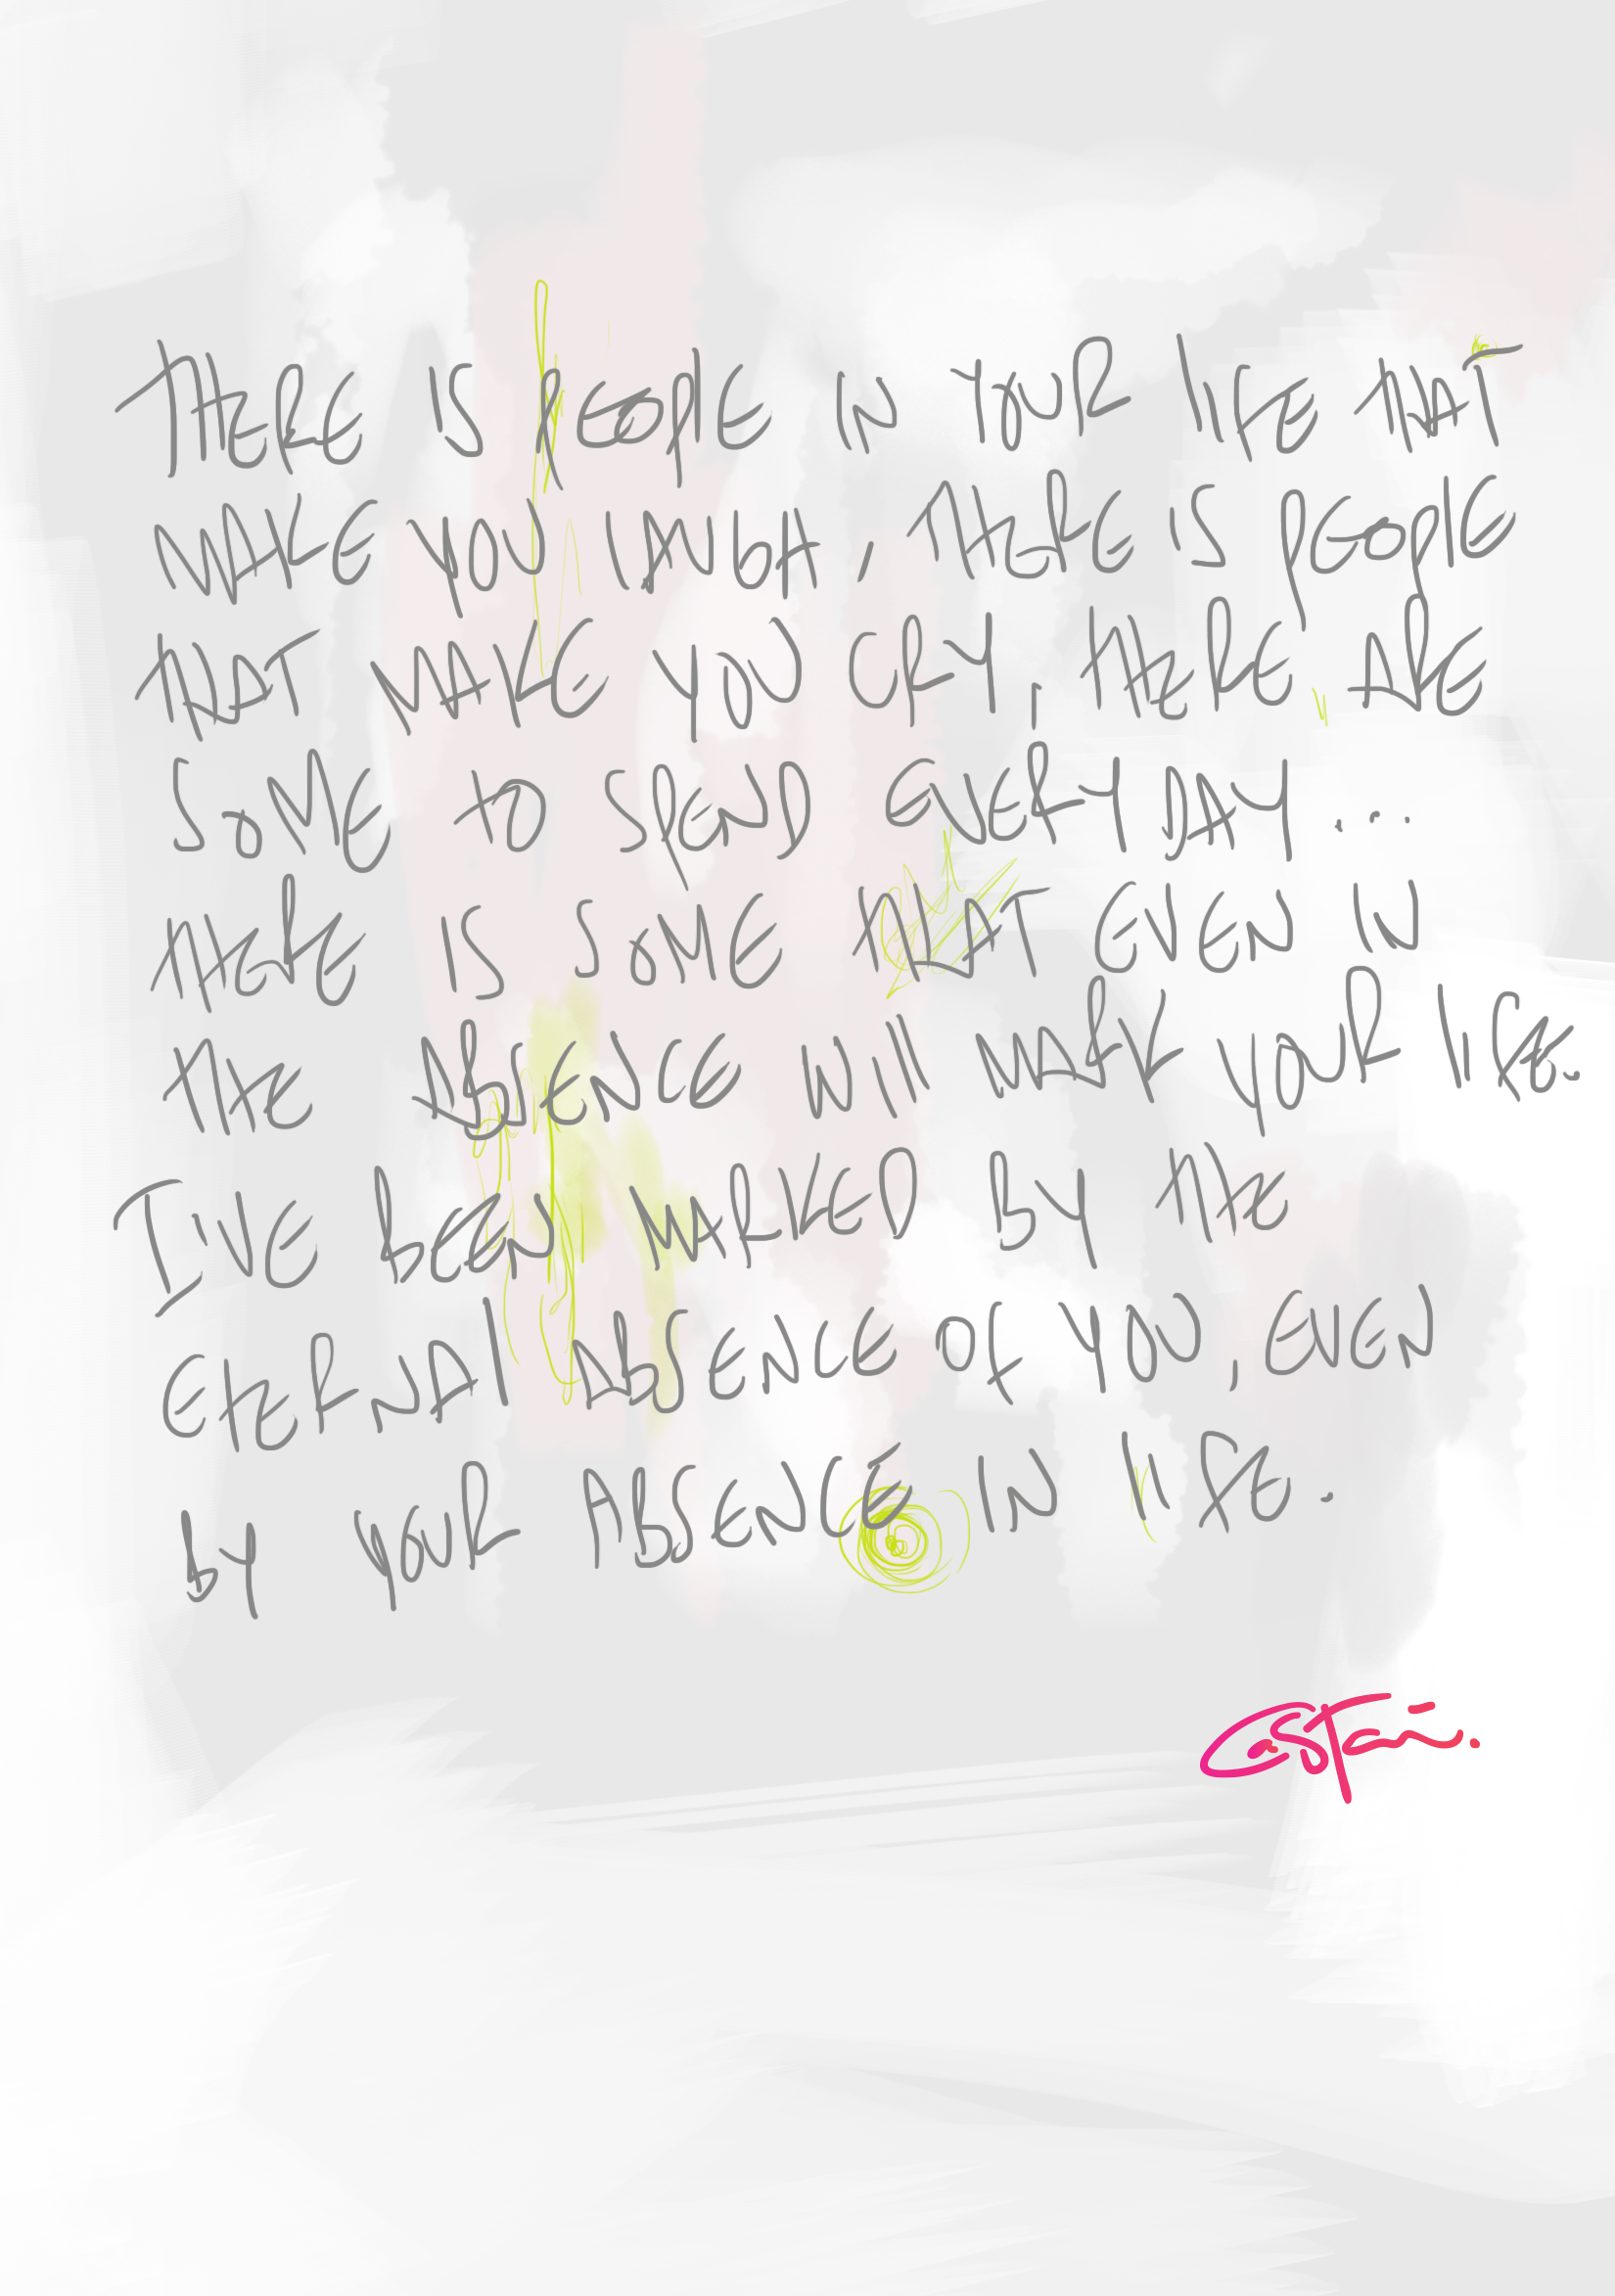 THERE IS PEOPLE IN YOUR LIFE THAT
MAKE YOU LAUGH, THERE IS PEOPLE
THAT MAKE YOU CRY, THERE ARE
SOME TO SPEND EVERY DAY...
THERE IS SOME THAT EVEN IN
THE ABSENCE WILL MARK YOUR LIFE.
I'VE BEEN MARKED BY THE
ETERNAL ABSENCE OF YOU, EVEN
BY YOUR ABSENCE IN LIFE.